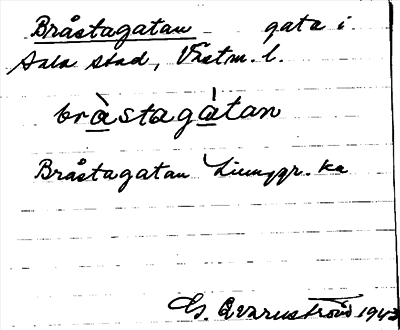 Bråstagatan gata i
Sala stad, Vstm. l.
bràstagàtan
Bråstagatan Ljunggr. ka
G. 1943